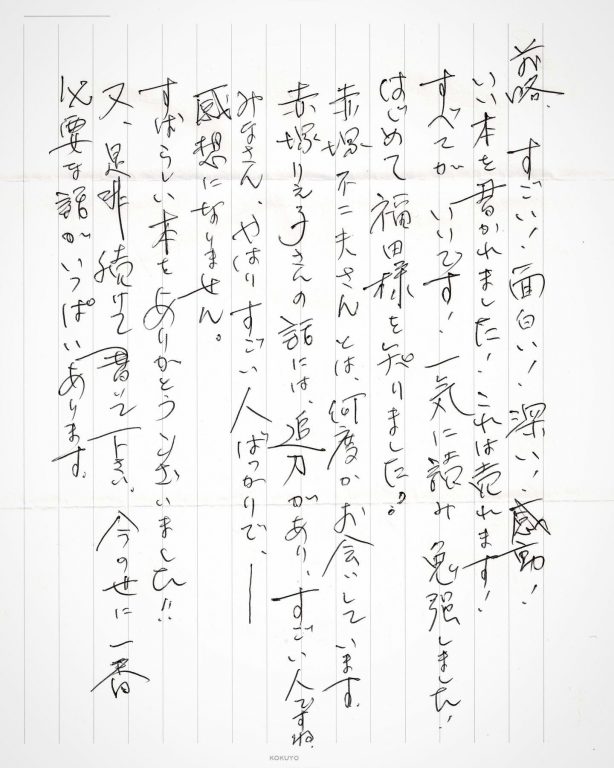 前略、すごい!面白い!深い!感動!
いい本を書かれました!これは売れます!
すべてがいいです!一気に読み勉強しました!
はじめて福田様を知りました?。
赤塚不二夫さんとは、何度かお会いしています。
赤塚りえ子さんの話には、迫力があり、すごい人ですね。
みなさん、やはりすごい人ばっかりで、――
感想になりません。
すばらしい本をありがとう玄いました!!
又、是非続けて書いて下さい。今のせに一番
必要な話がいっぱいあります。
KOKUYO